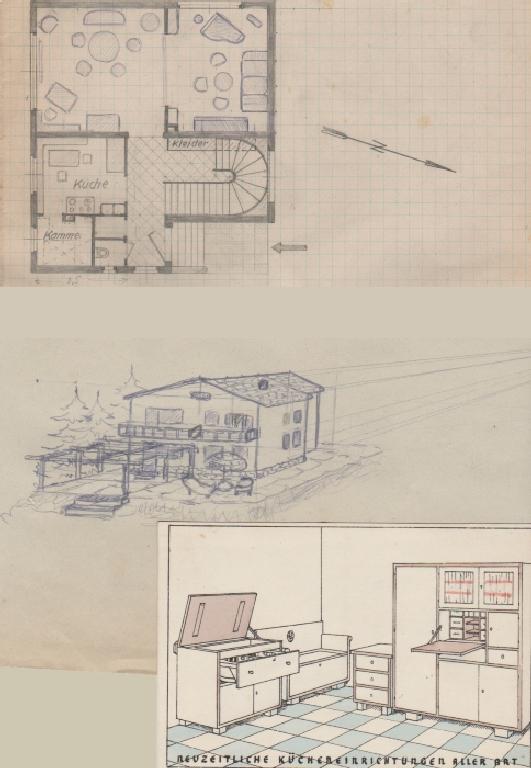 Kleider
Küche
Kamme
N
NEUZEITLICHE KÜCHENEINRICHTUNGEN ALLER ART